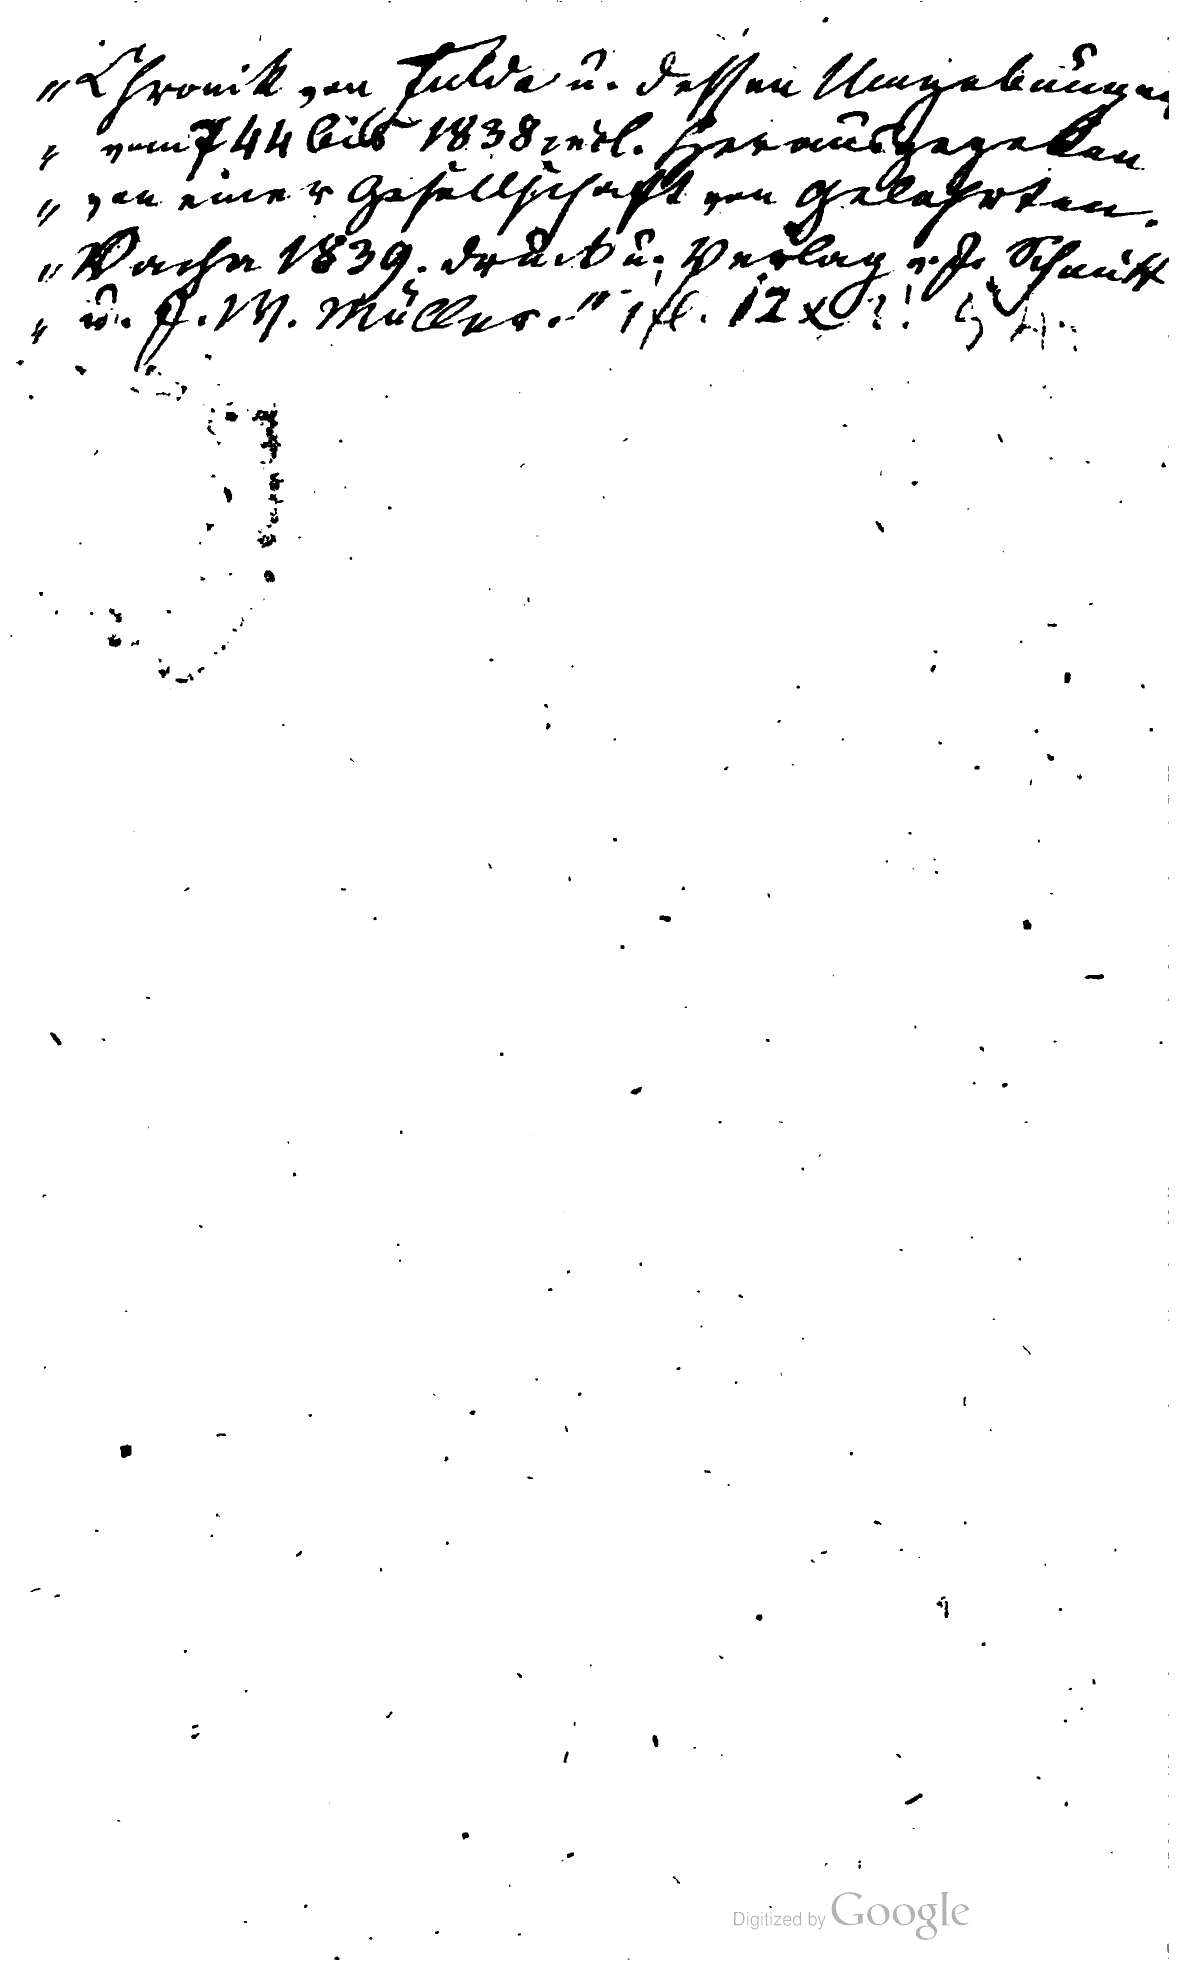 „Chronik von Fulda u. dessen Umgebungen
„ vom 744 bis 1838 incl. Herausgegeben
„ von einer Gesellschaft von Gelehrten.
„ Vacha 1839. Druck u. Verlag v. J. Schmitt
„ u. J. W. Müller.“ 1 fl. 12 x ?!
Digitized by Google